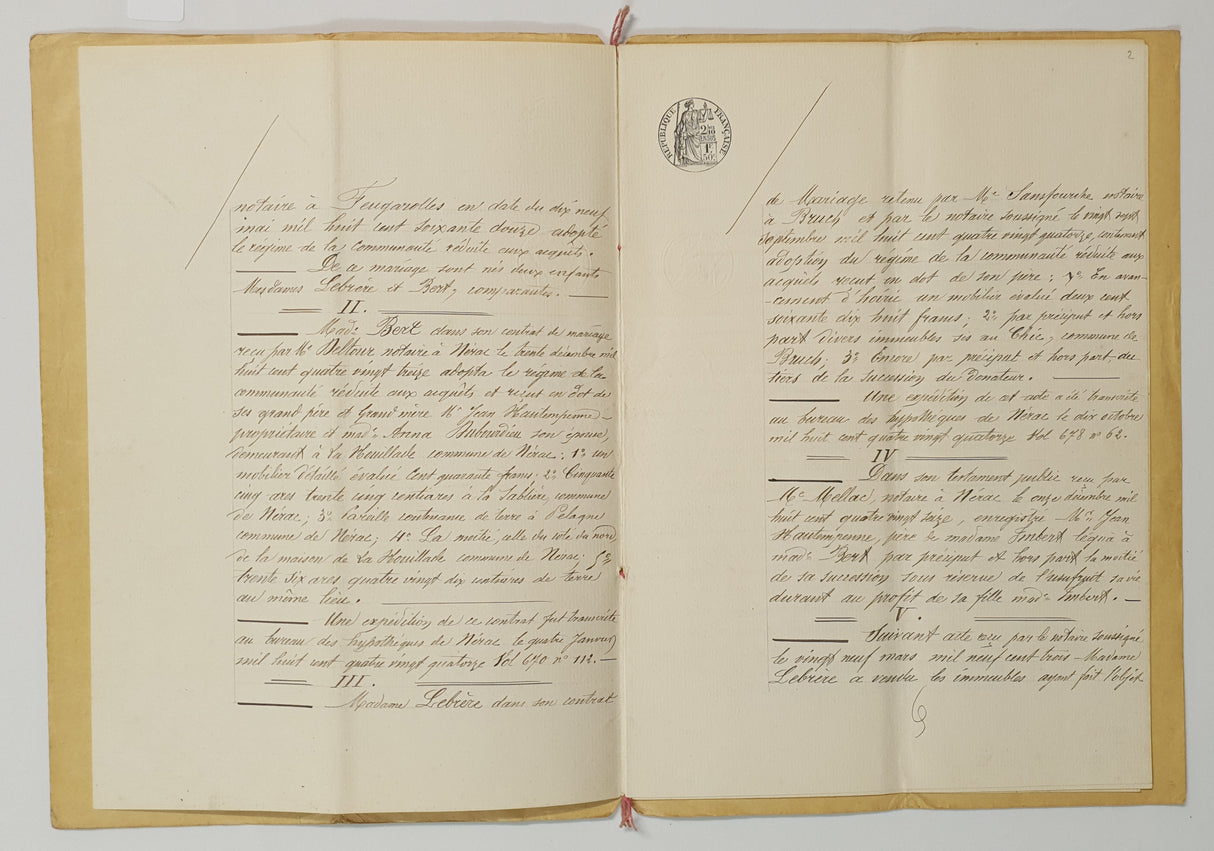 notaire à Feugarolles en date du dix neuf
mai mil huit cent soixante douze adopté
le régime de la communauté réduite aux acquêts.
De ce mariage sont nés deux enfants
Mesdames Lebrère et Bert, comparantes.
II.
Made Bert dans son contrat de mariage
reçu par Me Deltour notaire à Nérac le trente décembre mil
huit cent quatre vingt treize adopta le régime de la
communauté réduite aux acquêts et reçut en dot de
ses grand père et Grand mère Mr Jean Hautempenne
propriétaire et made Anna Dubourdieu son épouse,
demeurant à La Houillade commune de Nérac: 1° un
mobilier détaillé évalué Cent quarante francs; 2° Cinquante
cinq ares trente cinq centiares à la Sablère commune
de Nérac; 3° Pareille contenance de terre à Pelagne
commune de Nérac; 4° La moitié, celle du coté du nord
de la maison de La Houillade commune de Nérac; 5°
trente six ares quatre vingt dix centiares de terre
au même lieu.
Une expédition de ce contrat fut transcrite
au bureau des hypothèques de Nérac le quatre Janvier
mil huit cent quatre vingt quatorze Vol 670 n° 112.
III.
Madame Lebrère dans son contrat
2
RÉPUBLIQUE FRANÇAISE
1F
50c
de Mariage retenu par Me Sansfourche notaire
à Bruch et par le notaire soussigné le vingt sept
septembre mil huit cent quatre vingt quatorze, contenant
adoption du régime de la communauté réduite aux
acquêts reçut en dot de son père: 1° En avan-
cement d'hoirie un mobilier évalué deux cent
soixante dix huit francs; 2° par préciput et hors
part divers immeubles sis au Chic, commune de
Bruch; 3° Encore par préciput et hors part, du
tiers de la succession du Donateur.
Une expédition de cet acte a été transcrite
au bureau des hypothèques de Nérac le dix octobre
mil huit cent quatre vingt quatorze Vol 678 n° 62.
IV
Dans son testament public reçu par
Me Mellac, notaire à Nérac le onze décembre mil
huit cent quatre vingt seize, enregistré Mr Jean
Hautempenne, père de madame Imbert légua à
made Bert par préciput et hors part la moitié
de sa succession sous réserve de l'usufruit sa vie
durant au profit de sa fille made Imbert.
V.
Suivant acte reçu par le notaire soussigné
le vingt neuf mars mil neuf cent trois Madame
Lebrère a vendu les immeubles ayant fait l'objet